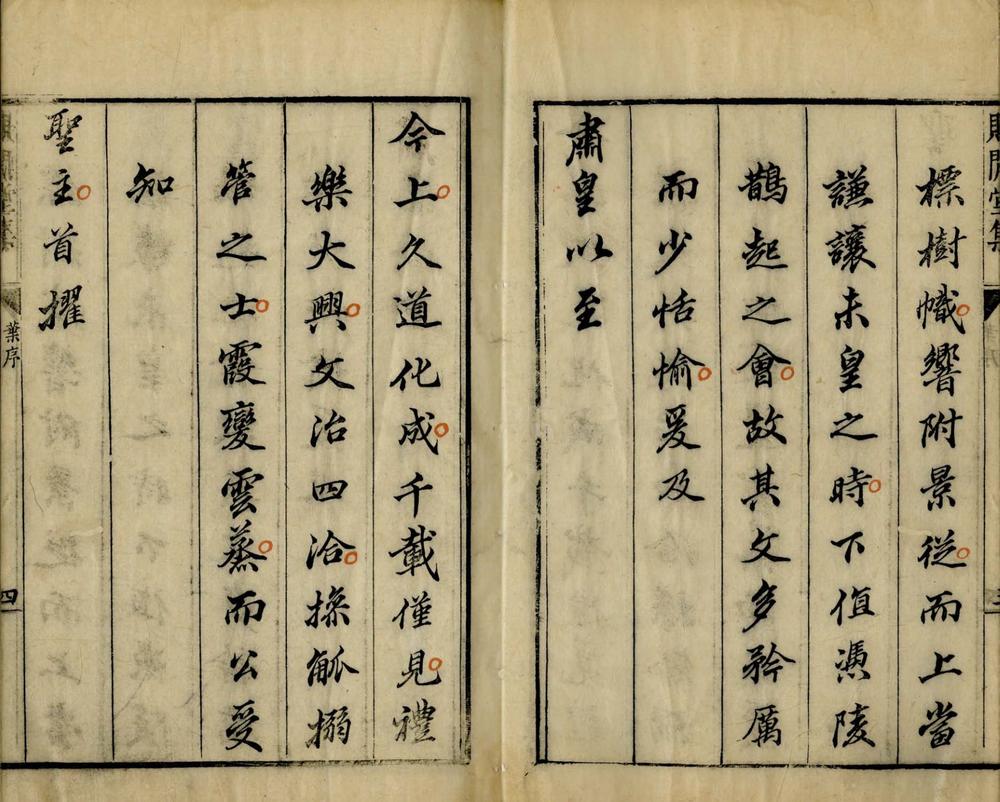 標樹幟響附景從而上當
謙讓未皇之時下值憑陵
鵲起之會故其文多矜厲
而少恬愉爰及
肅皇以至
今上久道化成千載僅見禮
樂大興文治四洽操觚搦
管之士霞變雲蒸而公受
知
聖主首擢
葉序
四